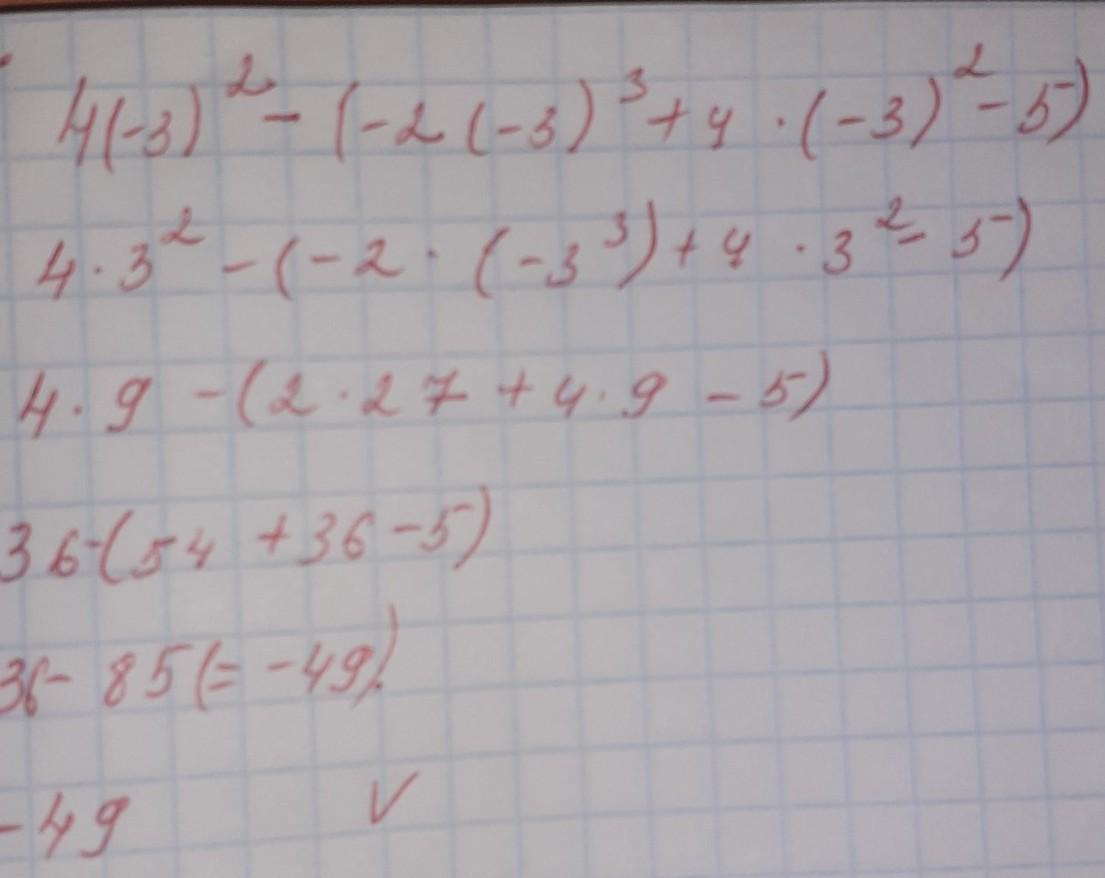 4(-3)² - (-2(-3)³ + 4 · (-3)² - 5)
4 · 3² - (-2 · (-3³) + 4 · 3² - 5)
4 · 9 - (2 · 27 + 4 · 9 - 5)
36 - (54 + 36 - 5)
36 - 85 (= -49).
-49 V